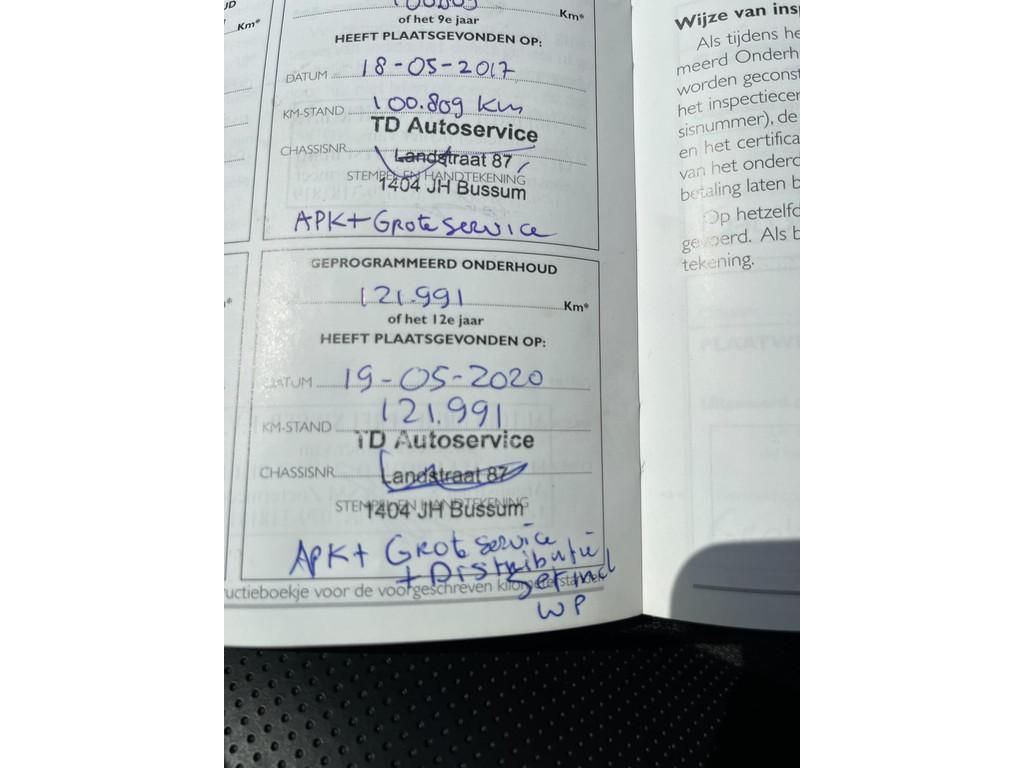 UD
Km*
Km*
of het 9e jaar
HEEFT PLAATSGEVONDEN OP:
DATUM 18-05-2017
KM-STAND 100.809 Km
TD Autoservice
CHASSISNR.
Landstraat 87
STEMPEL EN HANDTEKENING
1404 JH Bussum
APK+ Grote Service
GEPROGRAMMEERD ONDERHOUD
121.991 Km*
of het 12e jaar
HEEFT PLAATSGEVONDEN OP:
DATUM 19-05-2020
KM-STAND 121.991
TD Autoservice
CHASSISNR.
Landstraat 87
STEMPEL EN HANDTEKENING
1404 JH Bussum
APK+ Grot Service
+ Distributie
set incl
WP
uctieboekje voor de voorgeschreven kilometerstanden
Wijze van insp
Als tijdens he
meerd Onderh
worden geconst
het inspectiecer
sisnummer), de
en het certifica
van het onderd
betaling laten b
Op hetzelfd
gevoerd. Als b
tekening.